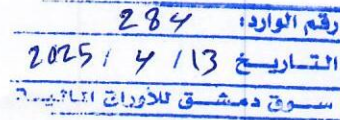 رقم الوارد: 284
التاريخ 2025 / 4 / 13
سوق دمشق للأوراق المالية